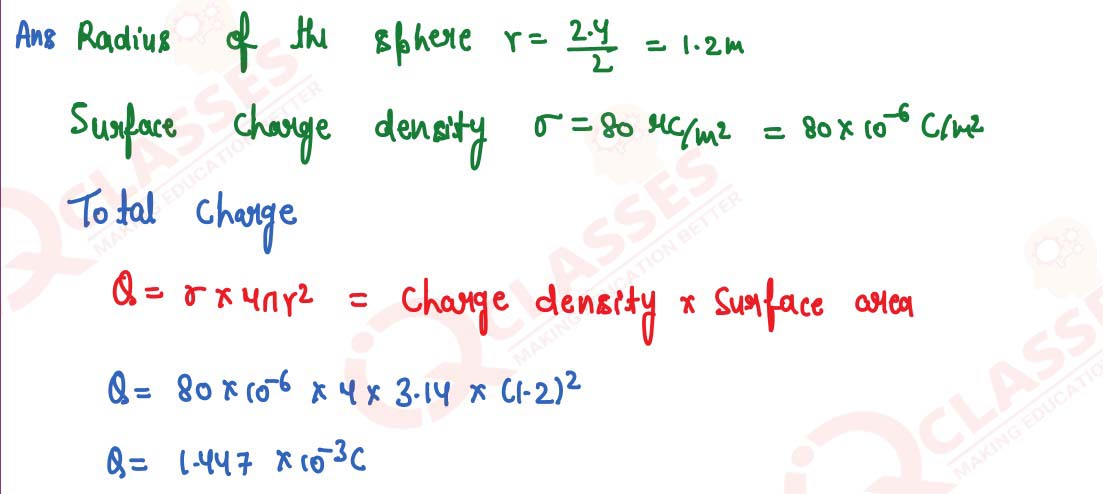 Ans Radius of the sphere r = 2.4/2 = 1.2m
Surface charge density σ = 80 μC/m2 = 80 × 10⁻⁶ C/m2
Total Charge
Q = σ × 4πr² = Charge density × Surface area
Q = 80 × 10⁻⁶ × 4 × 3.14 × (1.2)²
Q = 1.447 × 10⁻³ C
iQ CLASSES
MAKING EDUCATION BETTER
iQ CLASSES
MAKING EDUCATION BETTER
iQ CLASSES
MAKING EDUCATION